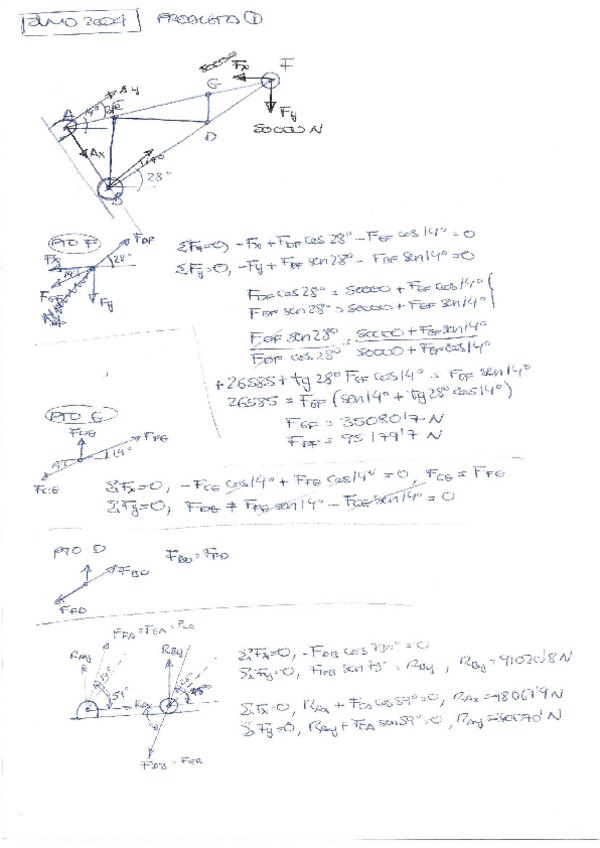 JUNIO 2004 PROBLEMA ①
50000
Fx F
Ay G
A 14° C
Fy
50000 N
D
Ax 14°
28°
B
PTO F FDF
Fx 28°
14°
FGF Fy
ΣFx=0, -Fx + FDF cos 28° - FGF cos 14° = 0
ΣFy=0, -Fy + FDF sen 28° - FGF sen 14° = 0
FDF cos 28° = 50000 + FGF cos 14°
FDF sen 28° = 50000 + FGF sen 14°
FDF sen 28° / FDF cos 28° = 50000 + FGF sen 14° / 50000 + FGF cos 14°
+26585 + tg 28° FGF cos 14° = FGF sen 14°
26585 = FGF (sen 14° + tg 28° cos 14°)
FGF = 35080'7 N
FDF = 95179'7 N
PTO G
FDG FFG
14°
FCG
ΣFx=0, -FCG cos 14° + FFG cos 14° = 0, FCG = FFG
ΣFy=0, FDG + FFG sen 14° - FCG sen 14° = 0
PTO D
FBD FBD = FFD
FFD
FFA = FGA = FCA
RAy RBy
51°
RAx
ΣFx=0, -FDB cos 790° = 0
ΣFy=0, FDB sen 73° = RBy, RBy = 91020'8 N
ΣFx=0, RAx + FCA cos 59° = 0, RAx = -18067'9 N
ΣFy=0, RAy + FCA sen 59° = 0, RAy = -30070' N